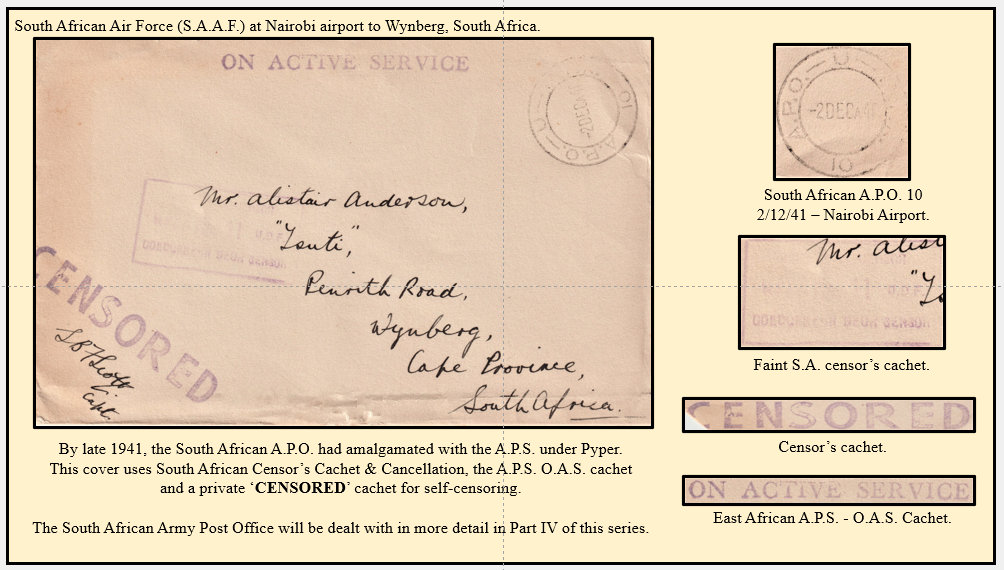 South African Air Force (S.A.A.F.) at Nairobi airport to Wynberg, South Africa.
ON ACTIVE SERVICE
A.P.O. — U — 10
-2DEC
Mr. Alistair Anderson,
U.D.F.
DEUR SENSOR
Penrith Road,
Wynberg,
Cape Province,
South Africa.
CENSORED
Capt.
By late 1941, the South African A.P.O. had amalgamated with the A.P.S. under Pyper.
This cover uses South African Censor's Cachet & Cancellation, the A.P.S. O.A.S. cachet
and a private 'CENSORED' cachet for self-censoring.
The South African Army Post Office will be dealt with in more detail in Part IV of this series.
A.P.O. — U —
-2DEC41
10
South African A.P.O. 10
2/12/41 – Nairobi Airport.
Mr. Alist
U.D.F.
DEUR SENSOR
Faint S.A. censor's cachet.
CENSORED
Censor's cachet.
ON ACTIVE SERVICE
East African A.P.S. - O.A.S. Cachet.